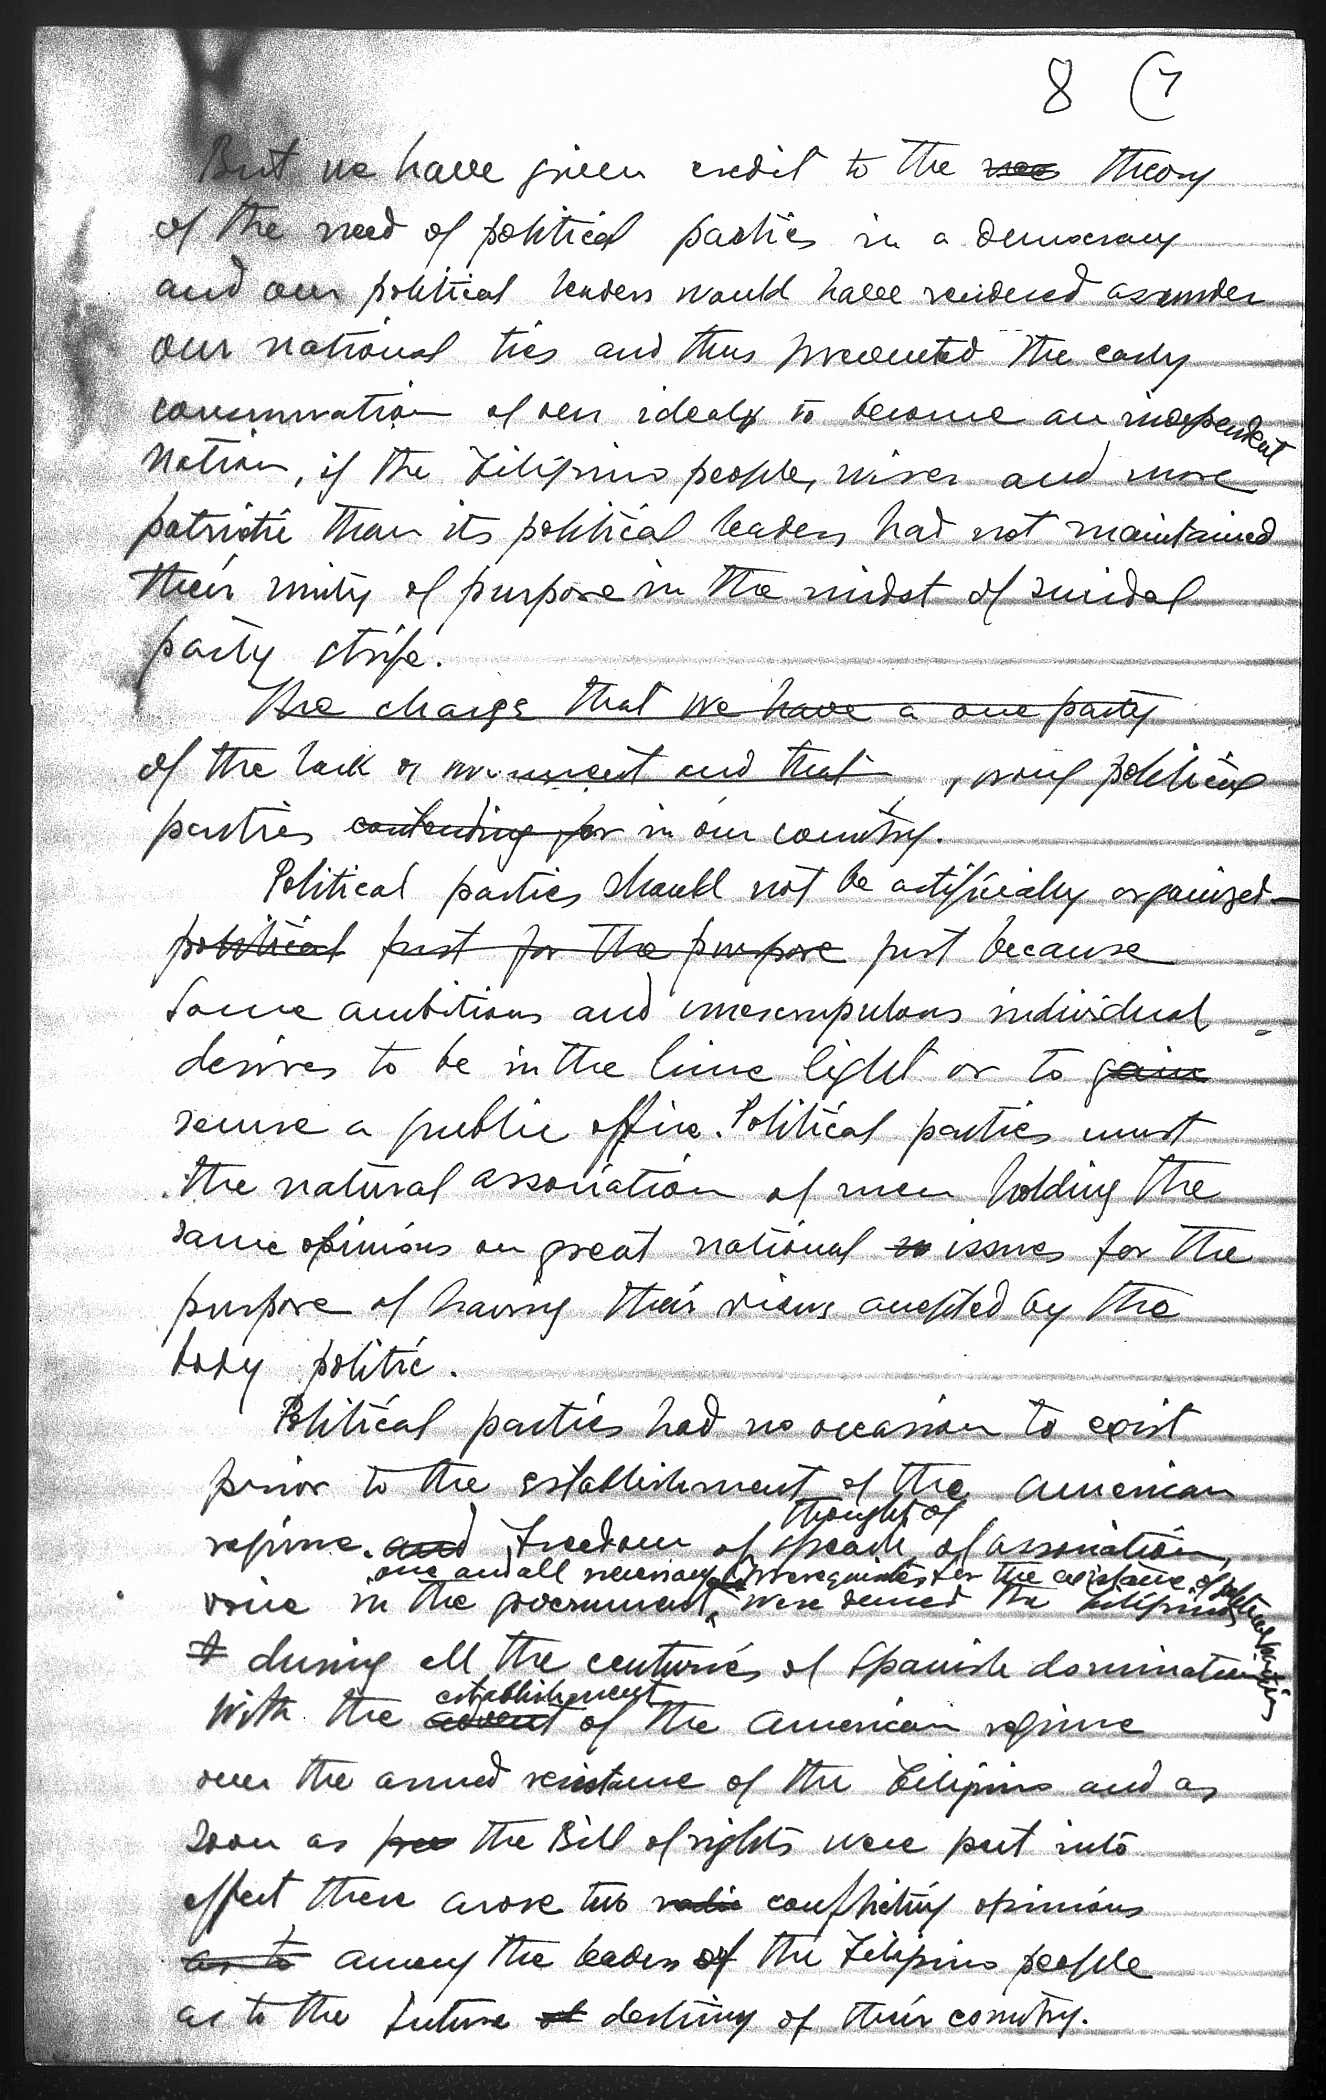 8 (7
But we have given credit to the theory
of the need of political parties in a democracy
and our political leaders would have rendered asunder
our national ties and thus prevented the early
consummation of our ideals to become an independent
nation, if the Filipino people, wiser and more
patriotic than its political leaders had not maintained
their unity of purpose in the midst of suicidal
party strife.
The charge that we have a one party
of the lack or and that , political
parties contending for in our country.
Political parties should not be artificially organized
political just for the purpose just because
some ambitious and unscrupulous individual
desires to be in the lime light or to gain
secure a public office. Political parties must
the natural association of men holding the
same opinions on great national issues for the
purpose of having their views accepted by the
body politic.
Political parties had no occasion to exist
prior to the establishment of the American
thought of
regime. and Freedom of speach, of association,
one and all necessary prerequisites for the existence of political parties
voice in the government, were denied the Filipinos
during all the centuries of Spanish domination
establishment
With the advent of the American regime
over the armed resistance of the Filipino and as
soon as the Bill of rights were put into
effect there arose two conflicting opinions
as to among the leaders of the Filipino people
as to the future destiny of their country.